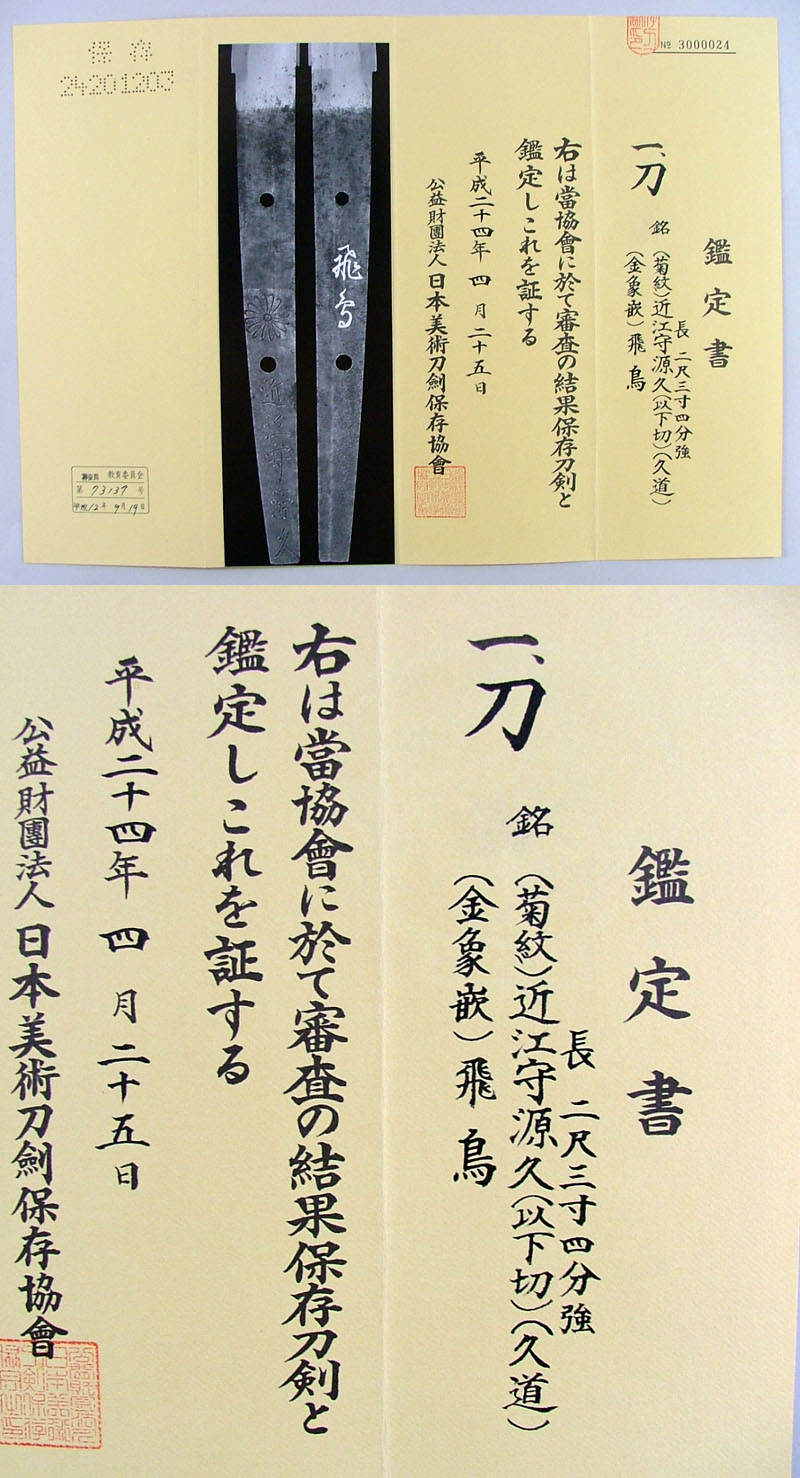 № 3000024
鑑定書
一、刀
銘 (菊紋)近江守源久(以下切)(久道)
長 二尺三寸四分強
(金象嵌)飛鳥
右は當協會に於て審査の結果保存刀剣と
鑑定しこれを証する
平成二十四年 四 月 二十五日
公益財團法人日本美術刀劍保存協會
飛鳥
近江守源久
保存
24201203
教育委員会
第 73137 号
平成12年 9月19日
鑑定書
一、刀
銘 (菊紋)近江守源久(以下切)(久道)
長 二尺三寸四分強
(金象嵌)飛鳥
右は當協會に於て審査の結果保存刀剣と
鑑定しこれを証する
平成二十四年 四 月 二十五日
公益財團法人日本美術刀劍保存協會